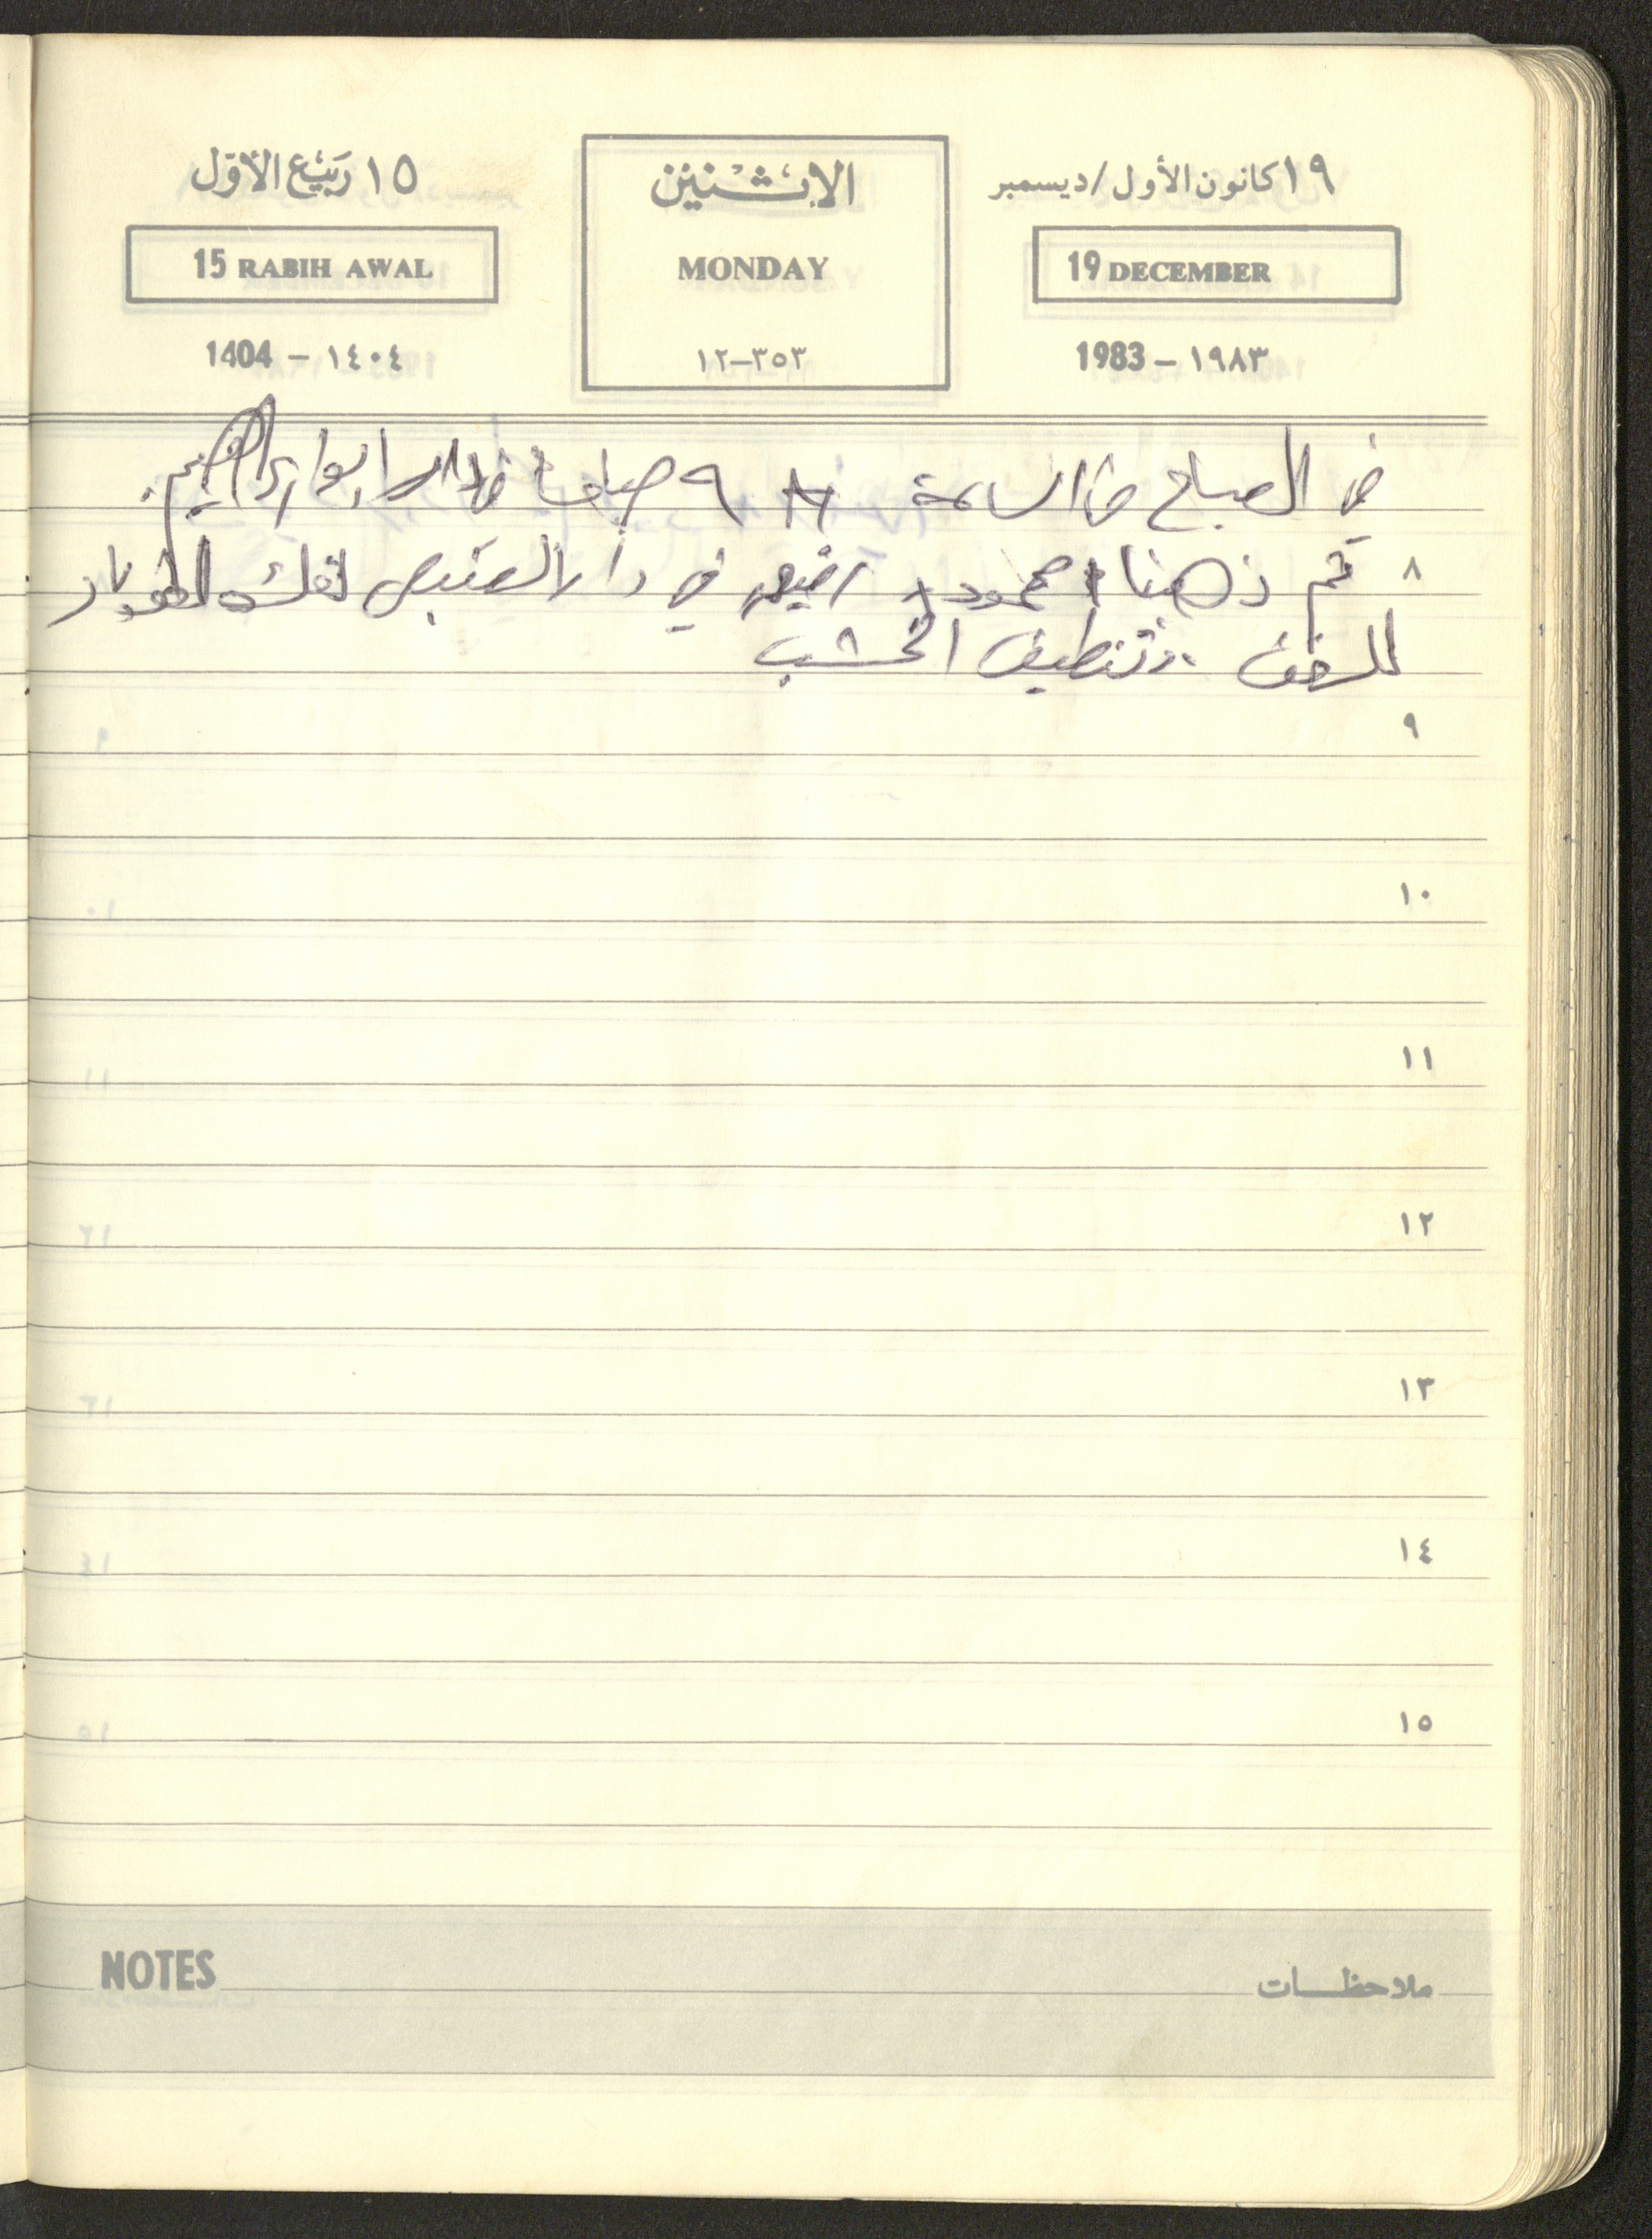 ١٩ كانون الأول/ديسمبر
19 DECEMBER
1983 - ١٩٨٣
الاثنين
MONDAY
١٢-٣٥٣
١٥ ربيع الأول
15 RABIH AWAL
1404 - ١٤٠٤
في الصباح في الساعة ٩ صباحا في دار ابو ابراهيم.
٨
ثم ذهبنا محمود رفيق في دار لفك الطوبار
للسقف وتنظيف الخشب
٩
١٠
١١
١٢
١٣
١٤
١٥
ملاحظات
NOTES